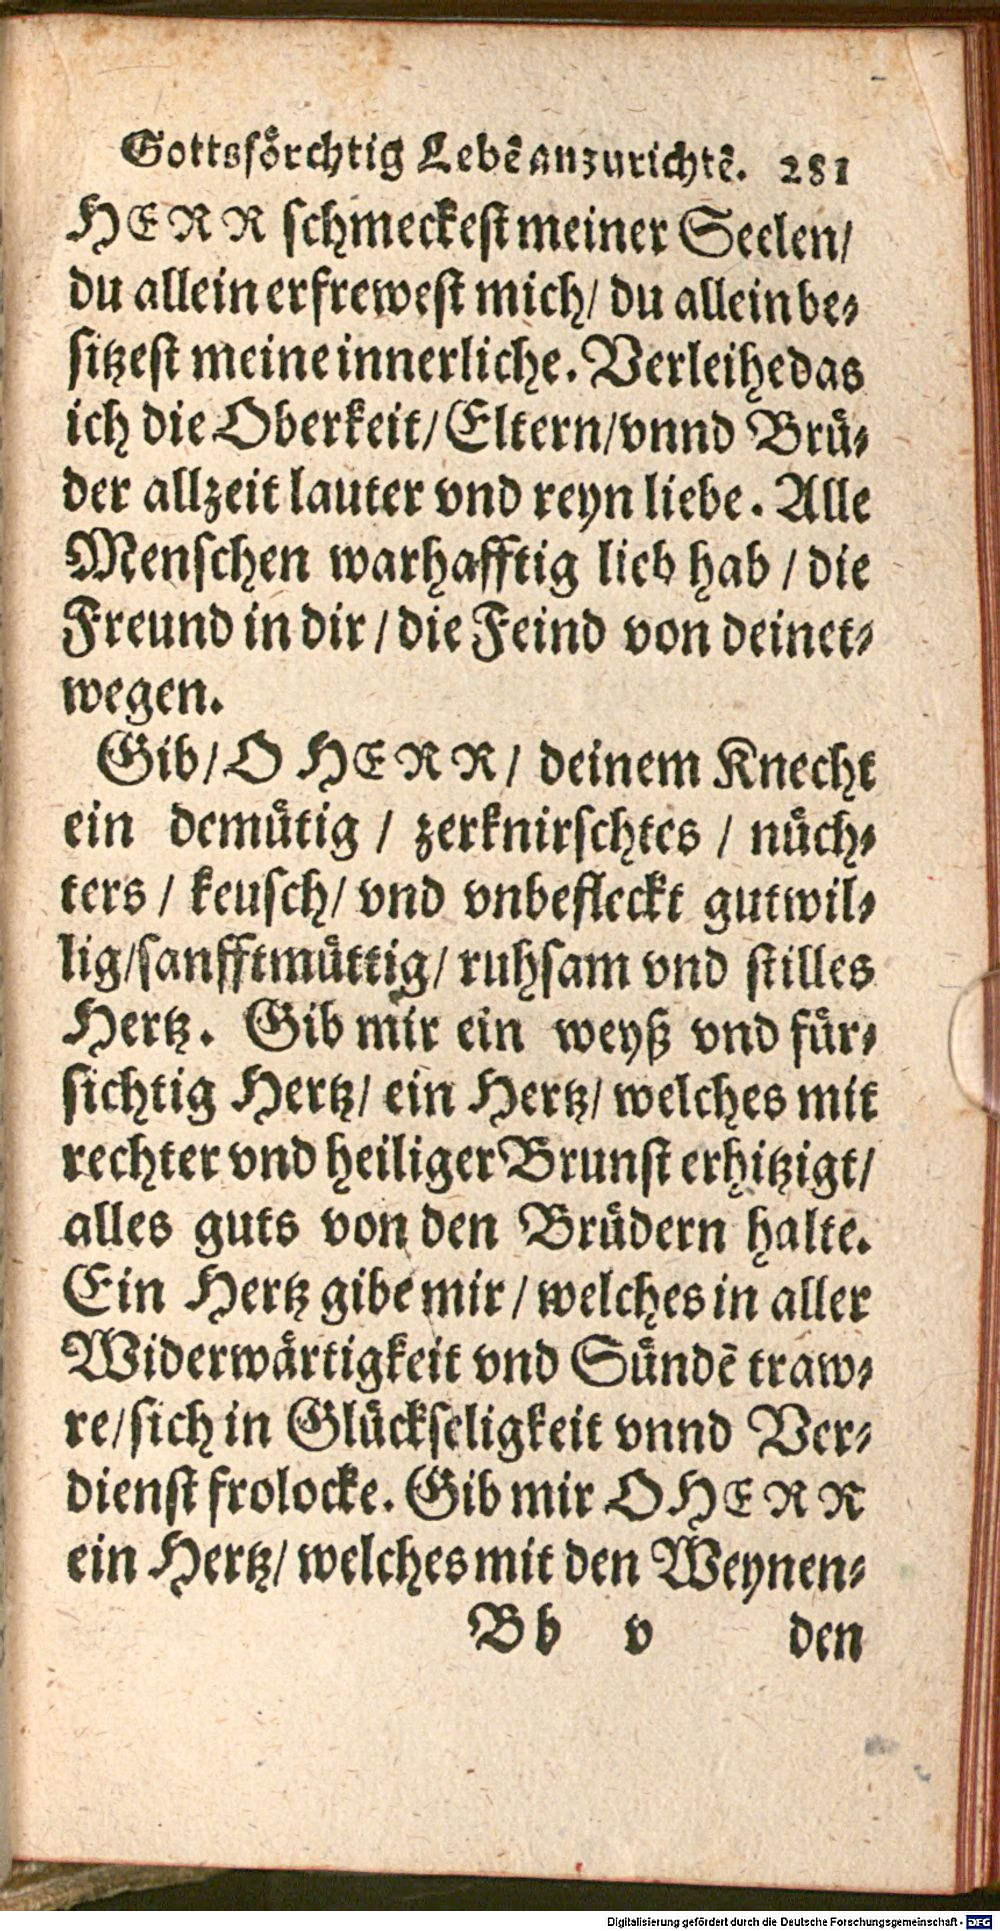 Gottsfoͤrchtig Lebē anzurichtē. 281
HERR schmeckest meiner Seelen/
du allein erfrewest mich/ du allein be⸗
sitzest meine innerliche. Verleihe das
ich die Oberkeit/ Eltern/ vnnd Bruͤ⸗
der allzeit lauter vnd reyn liebe. Alle
Menschen warhafftig lieb hab / die
Freund in dir / die Feind von deinet⸗
wegen.
Gib/ O HERR/ deinem Knecht
ein demuͤtig / zerknirschtes / nuͤch⸗
ters / keusch/ vnd vnbefleckt gutwil⸗
lig/ sanfftmuͤttig/ ruhsam vnd stilles
Hertz. Gib mir ein weyß vnd fuͤr⸗
sichtig Hertz/ ein Hertz/ welches mit
rechter vnd heiliger Brunst erhitzigt/
alles guts von den Bruͤdern halte.
Ein Hertz gibe mir / welches in aller
Widerwaͤrtigkeit vnd Suͤndē traw⸗
re/ sich in Gluͤckseligkeit vnnd Ver⸗
dienst frolocke. Gib mir O HERR
ein Hertz/ welches mit den Weynen⸗
Bb v den
Digitalisierung gefördert durch die Deutsche Forschungsgemeinschaft - DFG